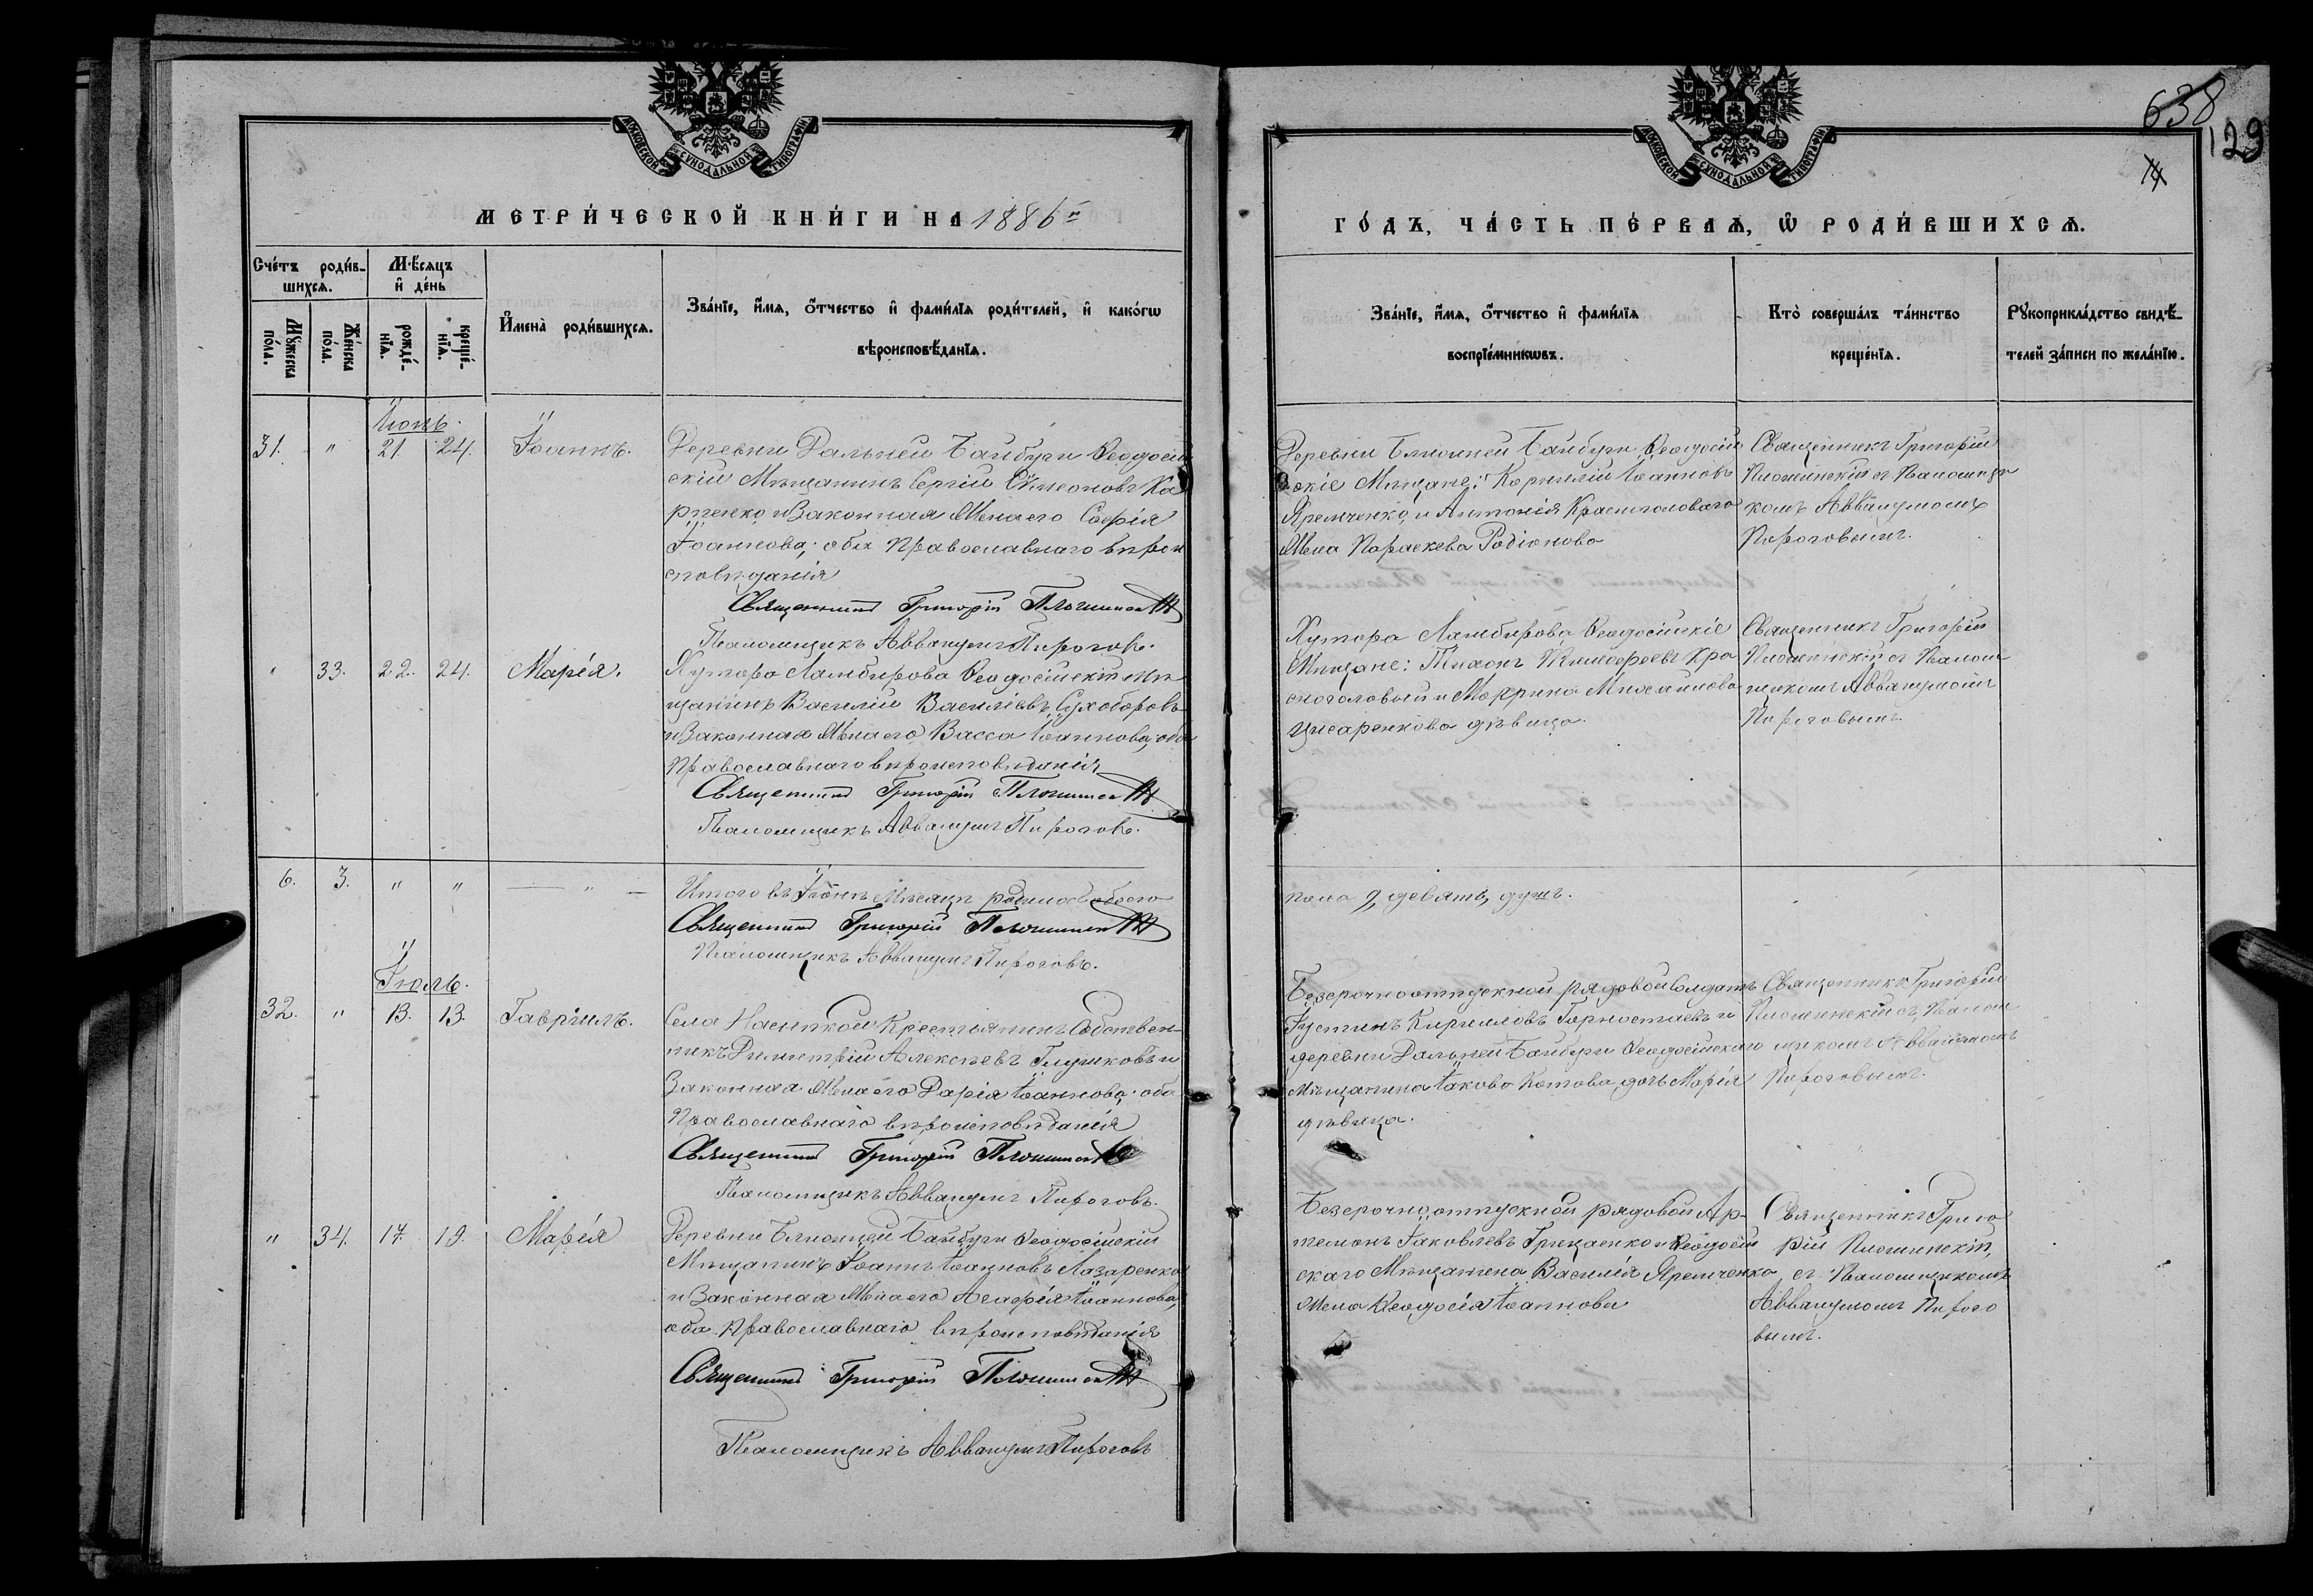 МОСКОВСКОЙ СѴНОДАЛЬНОЙ ТИПОГРАФІИ
МЕТРИ́ЧЕСКОЙ КНИ́ГИ НА 1886й
Сче́тъ роди́в-
шихсѧ.
Мѣ́сѧцъ
и҆ де́нь
Мꙋ́жеска
по́ла.
Же́нска
по́ла.
рожде́-
нїѧ.
креще́-
нїѧ.
И҆мена̀ роди́вшихсѧ.
Зва́нїе, и҆́мѧ, ѻ҆́тчество и҆ фами́лїѧ роди́телей, и҆ како́гѡ
вѣроисповѣ́данїѧ.
Іюнь.
31. " 21 24. Іоаннъ.
Деревни Дальней Байбуги Ѳеодосій
скій Мѣщанинъ Сергій Сѷмеоновъ Ка
рпенко и Законная Жена его Софія
Іоаннова; оба Православнаго вѣрои
сповѣданія
Священникъ Григорій
Псаломщикъ Аввакумъ Пироговъ.
" 33. 22. 24. Марія.
Хутора Ламбирова Ѳеодосійскій Мѣ
щанинъ Василій Василіевъ Сухоборовъ
и Законная Жена его Васса Іоаннова, оба
Православнаго вѣроисповѣданія
Священникъ Григорій
Псаломщикъ Аввакумъ Пироговъ.
6. 3. " " — " —
Итого въ Іюнѣ Мѣсяцѣ родилось обоего
Священникъ Григорій
Псаломщикъ Аввакумъ Пироговъ.
Іюль.
32. " 13. 13. Гавріилъ.
Села Насыпкой Крестьянинъ Собствен-
никъ Димитрій Алексѣевъ и
Законная Жена его Дарія Іоаннова; оба
Православнаго вѣроисповѣданія
Священникъ Григорій
Псаломщикъ Аввакумъ Пироговъ.
" 34. 17. 19. Марія
Деревни Ближней Байбуги Ѳеодосійскій
Мѣщанинъ Іоаннъ Іоанновъ Лазаренко
и Законная Жена его Агафія Іоаннова,
оба Православнаго вѣроисповѣданія
Священникъ Григорій
Псаломщикъ Аввакумъ Пироговъ
638
129
14
МОСКОВСКОЙ СѴНОДАЛЬНОЙ ТИПОГРАФІИ
ГО́ДЪ, ЧА́СТЬ ПЕ́РВАѦ, Ѡ҆ РОДИ́ВШИХСѦ.
Зва́нїе, и҆́мѧ, ѻ҆́тчество и҆ фами́лїѧ
воспрїе́мникѡвъ.
Кто̀ соверша́лъ та́инство
креще́нїѧ.
Рꙋкоприкла́дство свидѣ́-
телей за́писи по жела́нїю.
Деревни Ближней Байбуги Ѳеодосій
скіе Мѣщане: Корнилій Іоанновъ
Яремченко, и Антонія Красноголоваго
Жена Параскева Родіонова
Священникъ Григорій
съ Псаломщи
комъ Аввакумомъ
Пироговымъ.
Хутора Ламбирова Ѳеодосійскіе
Мѣщане: Тихонъ Кра
сноголовый и Маѵрина
Цисаренкова дѣвица.
Священникъ Григорій
съ Псалом
щикомъ Аввакумомъ
Пироговымъ.
пола 9, девять, душъ.
Безсрочноотпускной рядовой Солдатъ
Іустинъ Кирилловъ Горностаевъ и
деревни Дальней Байбуги Ѳеодосійскаго
Мѣщанина Іакова Котова дочь Марія
дѣвица.
Священникъ Григорій
съ Псалом
щикомъ Аввакумомъ
Пироговымъ.
Безсрочноотпускной рядовой Ар-
темонъ Іаковлевъ Гриценко и Ѳеодосій
скаго Мѣщанина Василія Яремченко
Жена Ѳеодосія Іоаннова
Священникъ Григо
рій
съ Псаломщикомъ
Аввакумомъ Пирого
вымъ.